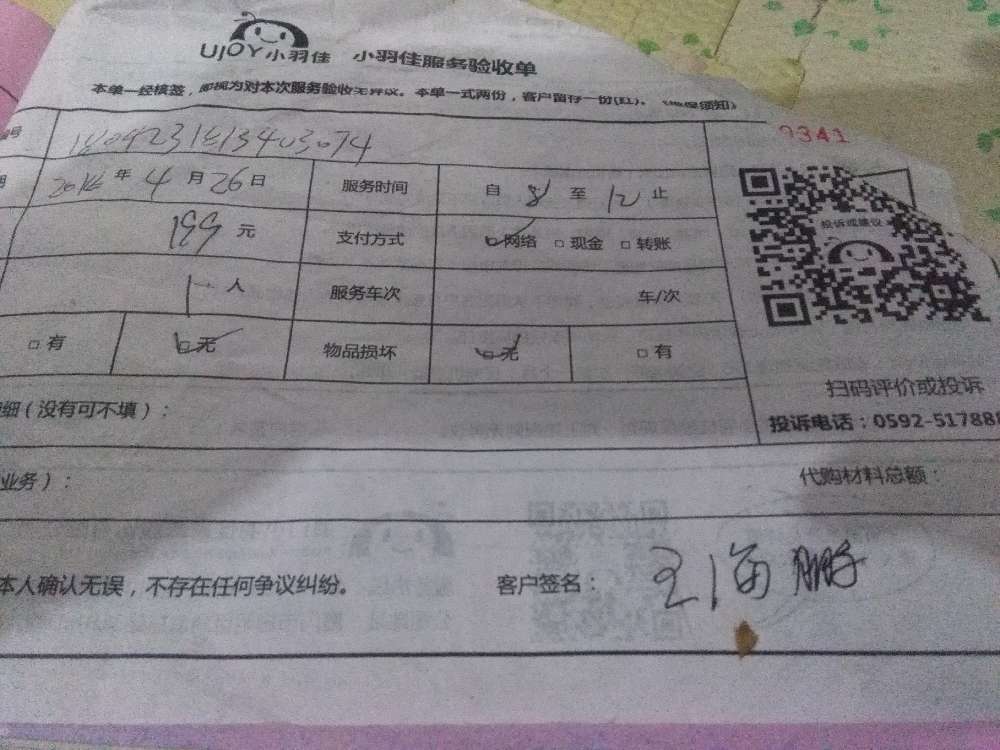 UJOY小羽佳 小羽佳服务验收单
本单一经核签，即视为对本次服务验收无异议。本单一式两份，客户留存一份(红)。
9341
编号
年 4 月 26 日 服务时间 自 8 至 12 止
199 元 支付方式 ☑网络 □现金 □转账
投诉或建议
1 人 服务车次 车/次
□有 ☑无 物品损坏 ☑无 □有
扫码评价或投诉
细（没有可不填）：
投诉电话：0592-517888
业务）：
代购材料总额：
本人确认无误，不存在任何争议纠纷。 客户签名： 王海鹏